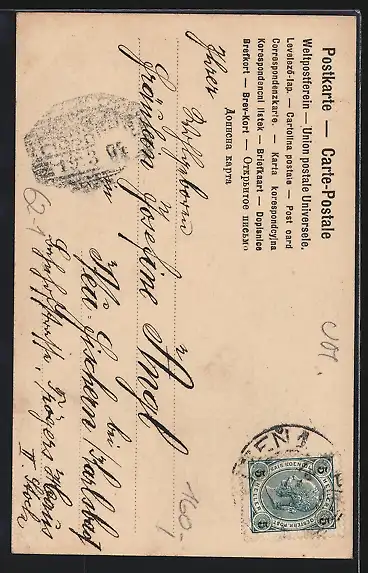 Postkarte — Carte-Postale
Weltpostverein — Union postale Universele.
Levelező-lap. — Cartolina postale — Post card
Correspondenzkarte. — Karta korespondcyjna
Korespondencni listek — Briefkaart — Dopisnice
Brefkort — Brev-Kort — Открытое письмо
Дописна карта
Ihrer Wohlgeboren
Fräulein Josefine Angl
in Neu-Fischern
bei Karlsbad
Haus
II. Stock
160-
5 5
5 5